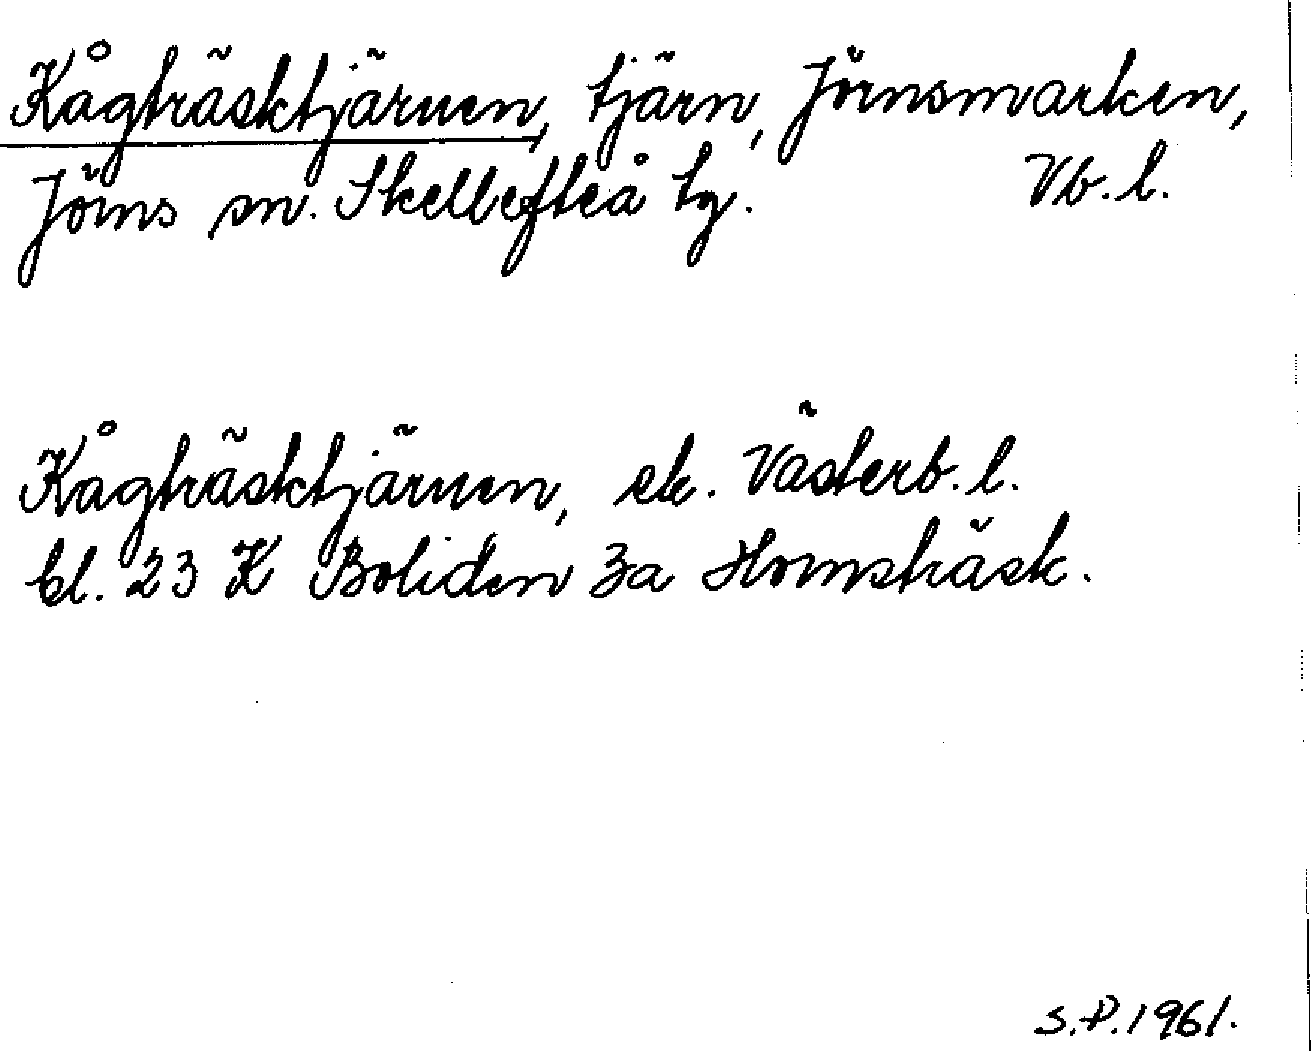 Kågträsktjärnen, tjärn, Jörnsmarken,
Jörns sn. Skellefteå tg. Vb. l.
Kågträsktjärnen, ek. Västerb. l.
bl. 23 K Boliden 3a Homsträsk.
S.P. 1961.